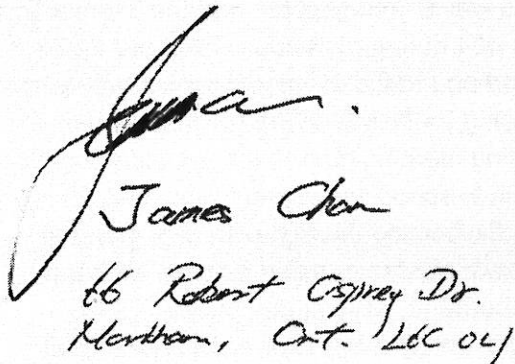 James Chan
66 Robert Osprey Dr.
Markham, Ont. L6C 0L1